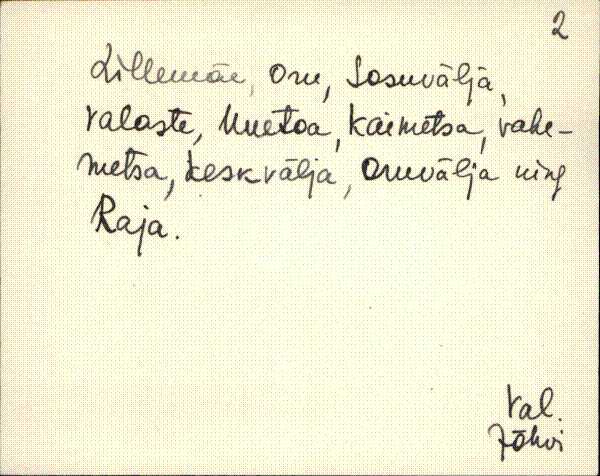 2
Lillemäe, Oru, Sosuvälja,
Valaste, Uuetoa, Käimetsa, vahe-
metsa, Keskvälja, Oruvälja ning
Raja.
Val.
Jõhvi